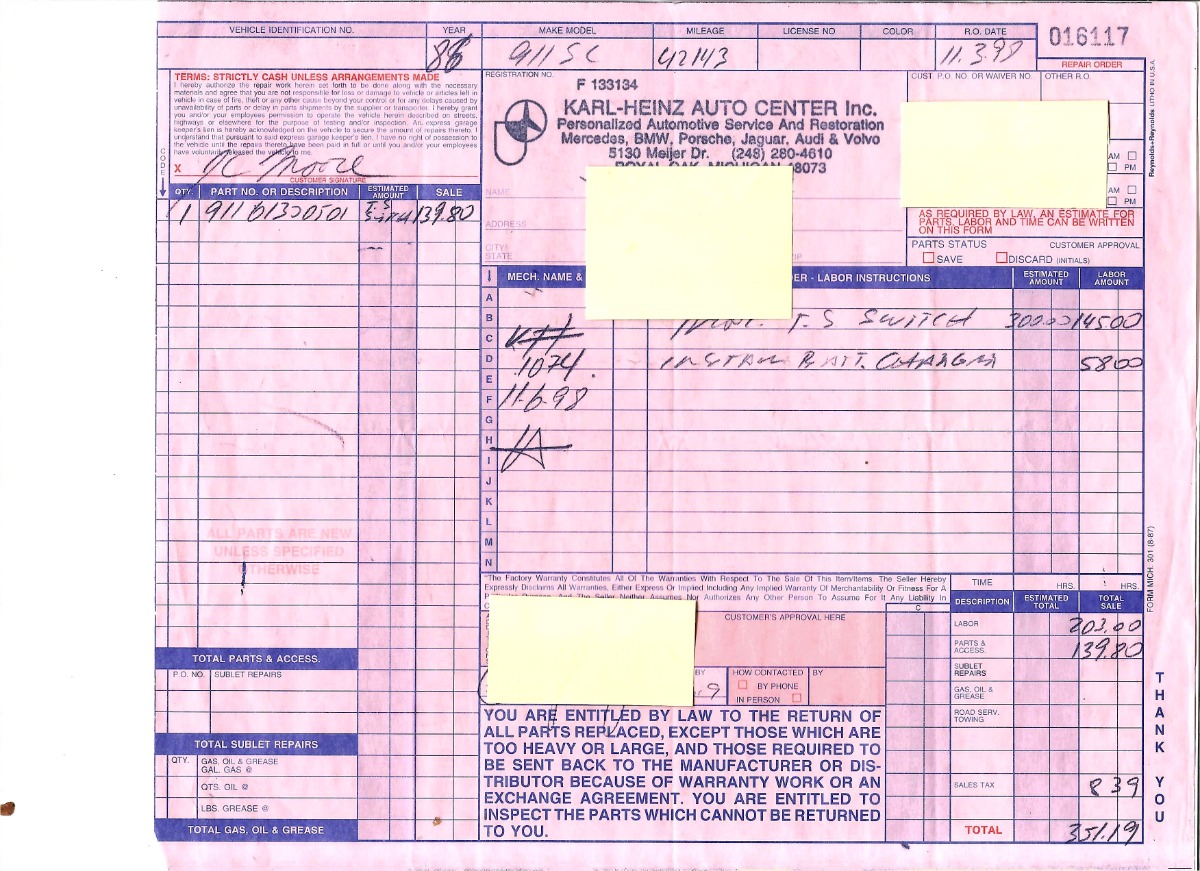 VEHICLE IDENTIFICATION NO. YEAR MAKE MODEL MILEAGE LICENSE NO COLOR R.O. DATE 016117
88 911 SC 42143 11.3.98
REPAIR ORDER
TERMS: STRICTLY CASH UNLESS ARRANGEMENTS MADE
I hereby authorize the repair work herein set forth to be done along with the necessary
materials and agree that you are not responsible for loss or damage to vehicle or articles left in
vehicle in case of fire, theft or any other cause beyond your control or for any delays caused by
unavailability of parts or delay in parts shipments by the supplier or transporter. I hereby grant
you and/or your employees permission to operate the vehicle herein described on streets,
highways or elsewhere for the purpose of testing and/or inspection. An express garage
keeper's lien is hereby acknowledged on the vehicle to secure the amount of repairs thereto. I
understand that pursuant to said express garage keeper's lien, I have no right of possession to
the vehicle until the repairs thereto have been paid in full or until you and/or your employees
have voluntarily released the vehicle to me.
X Moore
CUSTOMER SIGNATURE
CODE
REGISTRATION NO.
F 133134
KARL-HEINZ AUTO CENTER Inc.
Personalized Automotive Service And Restoration
Mercedes, BMW, Porsche, Jaguar, Audi & Volvo
5130 Meijer Dr. (248) 280-4610
ROYAL OAK, MICHIGAN 48073
NAME
ADDRESS
CITY/
STATE
CUST. P.O. NO. OR WAIVER NO. OTHER R.O.
AM
PM
AM
PM
AS REQUIRED BY LAW, AN ESTIMATE FOR
PARTS, LABOR AND TIME CAN BE WRITTEN
ON THIS FORM
PARTS STATUS CUSTOMER APPROVAL
SAVE DISCARD (INITIALS)
QTY. PART NO. OR DESCRIPTION ESTIMATED AMOUNT SALE
1 91161330501 T.S 139.80
MECH. NAME & ER - LABOR INSTRUCTIONS ESTIMATED AMOUNT LABOR AMOUNT
A
B T.S SWITCH 300.00 145.00
C
D 1074 INSTALL BATT. CHARGER 58.00
E
F 11-6-98
G
H
I
J
K
L
M
N
ALL PARTS ARE NEW
UNLESS SPECIFIED
OTHERWISE
"The Factory Warranty Constitutes All Of The Warranties With Respect To The Sale Of This Item/Items. The Seller Hereby
Expressly Disclaims All Warranties, Either Express Or Implied Including Any Implied Warranty Of Merchantability Or Fitness For A
Purpose, And The Seller Neither Assumes Nor Authorizes Any Other Person To Assume For It Any Liability In
C
CUSTOMER'S APPROVAL HERE
BY HOW CONTACTED BY
BY PHONE
IN PERSON
YOU ARE ENTITLED BY LAW TO THE RETURN OF
ALL PARTS REPLACED, EXCEPT THOSE WHICH ARE
TOO HEAVY OR LARGE, AND THOSE REQUIRED TO
BE SENT BACK TO THE MANUFACTURER OR DIS-
TRIBUTOR BECAUSE OF WARRANTY WORK OR AN
EXCHANGE AGREEMENT. YOU ARE ENTITLED TO
INSPECT THE PARTS WHICH CANNOT BE RETURNED
TO YOU.
TIME HRS. HRS.
DESCRIPTION ESTIMATED TOTAL TOTAL SALE
LABOR 203.00
PARTS & ACCESS. 139.80
SUBLET REPAIRS
GAS, OIL & GREASE
ROAD SERV. TOWING
SALES TAX 8 39
TOTAL 351.19
TOTAL PARTS & ACCESS.
P.O. NO. SUBLET REPAIRS
TOTAL SUBLET REPAIRS
QTY. GAS, OIL & GREASE
GAL. GAS @
QTS. OIL @
LBS. GREASE @
TOTAL GAS, OIL & GREASE
Reynolds+Reynolds LITHO IN U.S.A.
FORM MICH. 301 (8-87)
THANK YOU